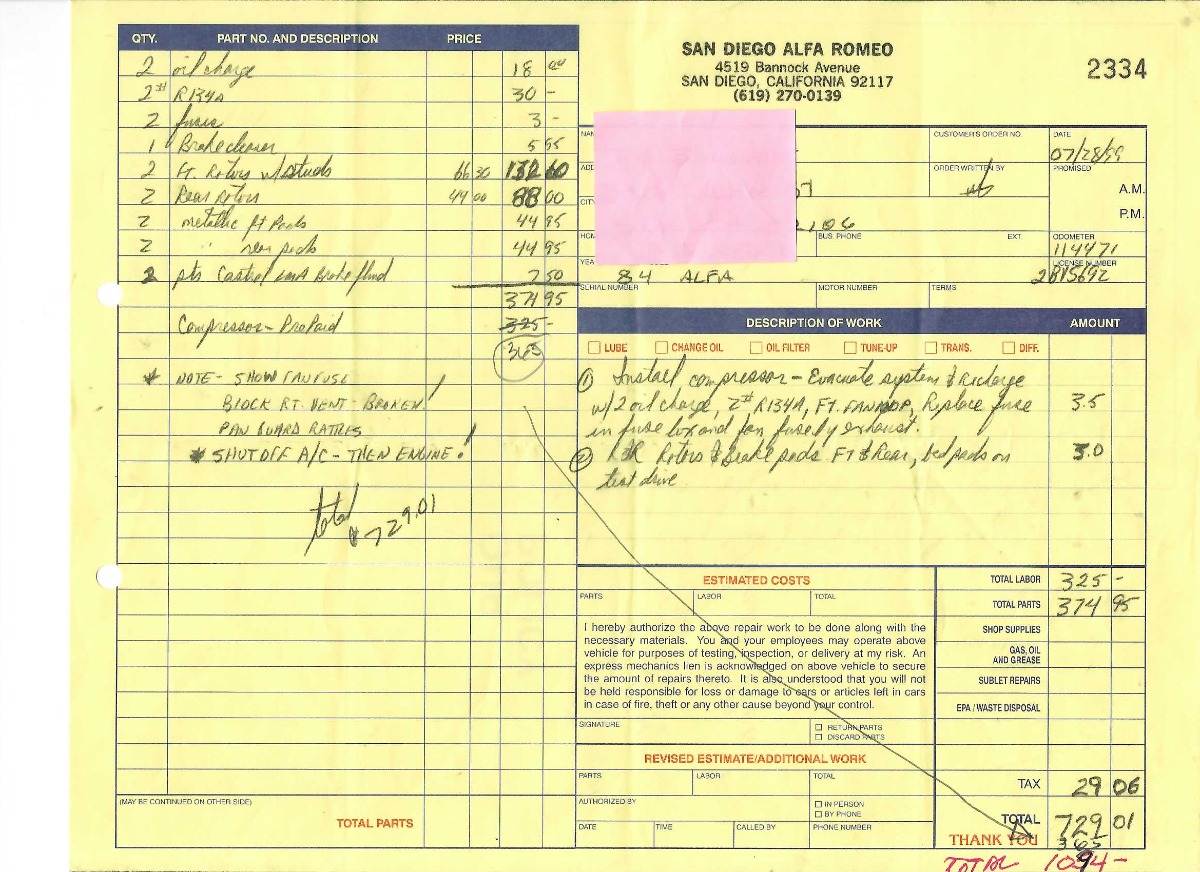 QTY. PART NO. AND DESCRIPTION PRICE
2 oil charge 18 00
2# R134A 30 -
2 fuses 3 -
1 Brake cleaner 5 95
2 Ft. Rotors w/studs 66 30 132 60
2 Rear rotors 44 00 88 00
2 metallic ft Pads 44 95
2 " rear pads 44 95
2 pts Castrol Brake fluid 7 50
374 95
Compressor - PrePaid 325 -
365
* NOTE - SHOW FAN FUSE
BLOCK RT. VENT - BROKEN!
PAN GUARD RATTLES
* SHUT OFF A/C - THEN ENGINE!
total
$729.01
(MAY BE CONTINUED ON OTHER SIDE)
TOTAL PARTS
SAN DIEGO ALFA ROMEO
4519 Bannock Avenue
SAN DIEGO, CALIFORNIA 92117
(619) 270-0139
2334
CUSTOMER'S ORDER NO. DATE
07/28/99
ORDER WRITTEN BY PROMISED
A.M.
P.M.
BUS. PHONE EXT. ODOMETER
114471
LICENSE NUMBER
84 ALFA
SERIAL NUMBER MOTOR NUMBER TERMS
DESCRIPTION OF WORK AMOUNT
LUBE CHANGE OIL OIL FILTER TUNE-UP TRANS. DIFF.
① Install compressor - Evacuate system & Recharge
w/2 oil charge, 2# R134A, FT. FAN INOP, Replace fuse 3.5
in fuse box and fan fuse by exhaust.
② R&R Rotors & Brake pads Ft & Rear, bed pads on 3.0
test drive
ESTIMATED COSTS
PARTS LABOR TOTAL
I hereby authorize the above repair work to be done along with the
necessary materials. You and your employees may operate above
vehicle for purposes of testing, inspection, or delivery at my risk. An
express mechanics lien is acknowledged on above vehicle to secure
the amount of repairs thereto. It is also understood that you will not
be held responsible for loss or damage to cars or articles left in cars
in case of fire, theft or any other cause beyond your control.
SIGNATURE
RETURN PARTS
DISCARD PARTS
REVISED ESTIMATE/ADDITIONAL WORK
PARTS LABOR TOTAL
AUTHORIZED BY
IN PERSON
BY PHONE
DATE TIME CALLED BY PHONE NUMBER
TOTAL LABOR 325 -
TOTAL PARTS 374 95
SHOP SUPPLIES
GAS, OIL
AND GREASE
SUBLET REPAIRS
EPA / WASTE DISPOSAL
TAX 29 06
TOTAL 729 01
THANK YOU 365
TOTAL 1094 -